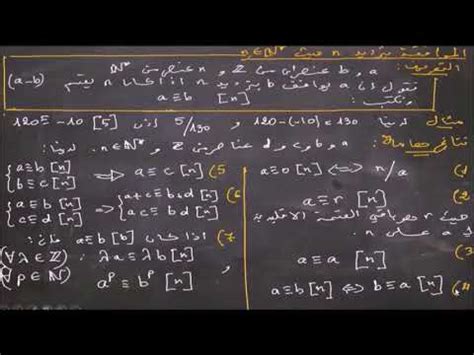 الموافقة بترديد n حيث n∈ℕ*
التعريف: a و b عنصران من ℤ و n عنصر من ℕ*
نقول إن a يوافق b بترديد n إذا كان n يقسم (a-b)
ونكتب: a≡b [n]
مثال لدينا 120-(-10)=130 و 5/130 إذن 120≡-10 [5]
نتائج هامة: a و b و c و d عناصر من ℤ و n∈ℕ*. لدينا:
(1 a≡0[n] ⟺ n/a
(2 a≡r [n]
حيث r هو باقي القسمة الاقليدية
لـ a على n.
(3 a≡a [n]
(4 a≡b[n] ⟺ b≡a[n]
(5 {a≡b [n] b≡c [n] ⟹ a≡c [n]
(6 {a≡b [n] c≡d [n] ⟹ {a+c≡b+d [n] ac≡bd [n]
(7 إذا كان a≡b [n] فإن:
(∀λ∈ℤ): λa≡λb [n] و
(∀p∈ℕ) a^p≡b^p [n]